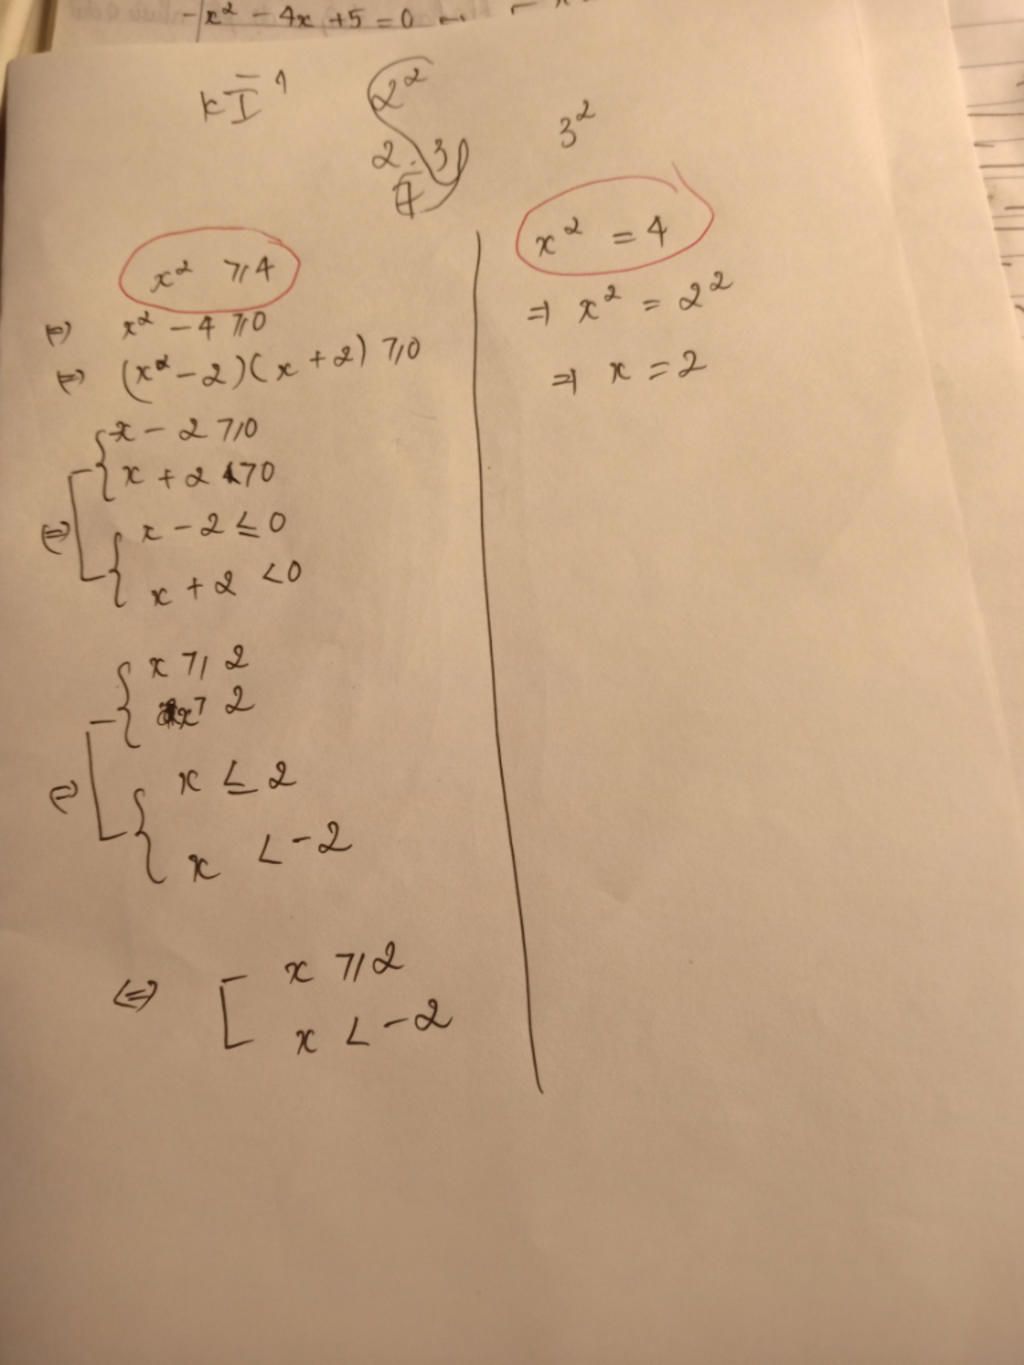 x² - 4x + 5 = 0
2²
2. 3
3²
x² ⩾ 4
⇔ x² - 4 ⩾ 0
⇔ (x² - 2)(x + 2) ⩾ 0
x - 2 ⩾ 0
x + 2 > 0
⇔
x - 2 ≤ 0
x + 2 < 0
x ⩾ 2
x > 2
⇔
x ≤ 2
x < -2
⇔
x ⩾ 2
x < -2
x² = 4
⇒ x² = 2²
⇒ x = 2